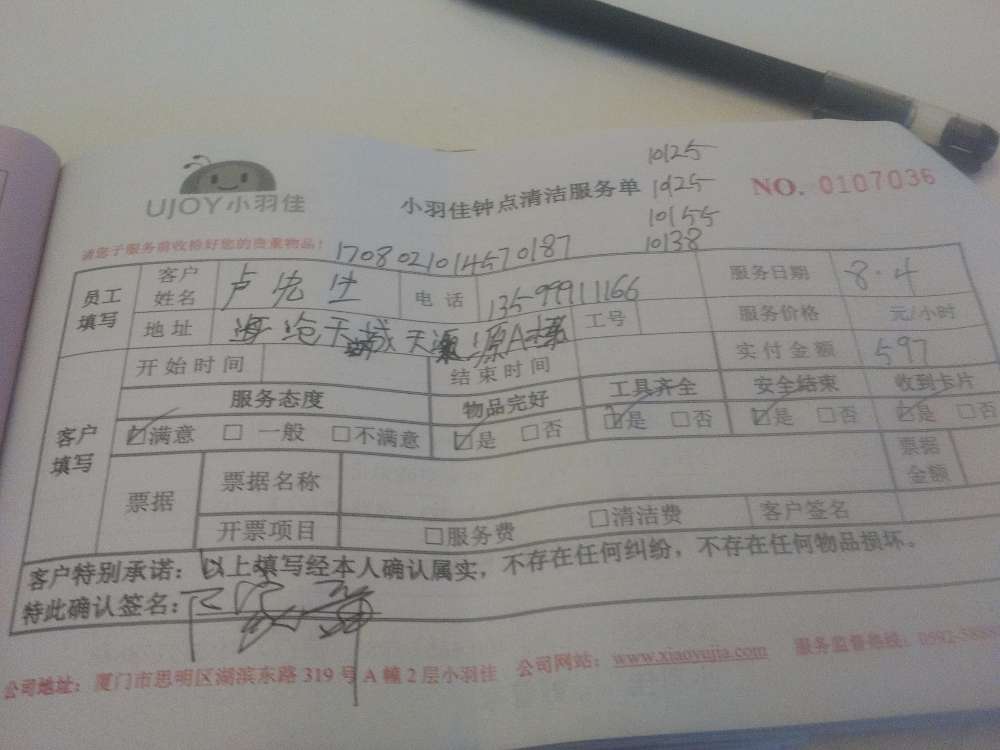 10125
UJOY小羽佳 小羽佳钟点清洁服务单 1025 NO. 0107036
10155
请您于服务前收拾好您的贵重物品! 1708021014570187 10138
员工填写 客户姓名 卢先生 电话 13599911166 服务日期 8.4
地址 天 天 A 工号 服务价格 元/小时
客户填写 开始时间 结束时间 实付金额 597
服务态度 物品完好 工具齐全 安全结束 收到卡片
☑满意 □一般 □不满意 ☑是 □否 ☑是 □否 ☑是 □否 ☑是 □否
票据 票据名称 票据金额
开票项目 □服务费 □清洁费 客户签名
客户特别承诺:以上填写经本人确认属实,不存在任何纠纷,不存在任何物品损坏。
特此确认签名:
公司地址:厦门市思明区湖滨东路319号A幢2层小羽佳 公司网站:www.xiaoyujia.com 服务监督热线:0592-588